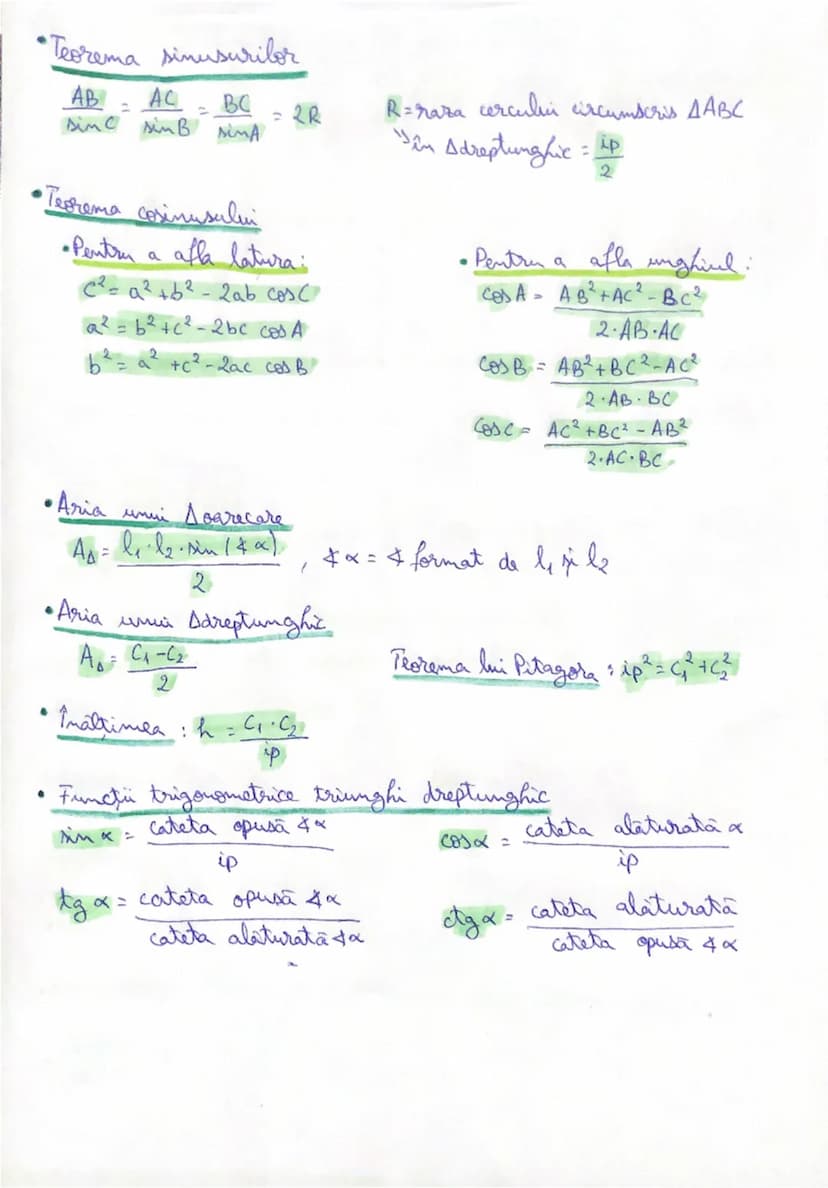 • Teorema sinusurilor
AB/sin C = AC/sin B = BC/sin A = 2R
R = raza cercului circumscris ΔABC
în Δdreptunghic = ip/2
• Teorema cosinusului
• Pentru a afla latura:
c² = a² + b² - 2ab cos C
a² = b² + c² - 2bc cos A
b² = a² + c² - 2ac cos B
• Pentru a afla unghiul:
cos A = AB² + AC² - BC² / 2·AB·AC
cos B = AB² + BC² - AC² / 2·AB·BC
cos C = AC² + BC² - AB² / 2·AC·BC
• Aria unui Δ oarecare
A_Δ = l₁·l₂·sin(∢α) / 2 , ∢α = ∢ format de l₁ și l₂
• Aria unui Δdreptunghic
A_Δ = C₁-C₂ / 2
Teorema lui Pitagora : ip² = C₁² + C₂²
• Înălțimea : h = C₁·C₂ / ip
• Funcții trigonometrice triunghi dreptunghic
sin α = cateta opusă ∢α / ip
cos α = cateta alăturată α / ip
tg α = cateta opusă ∢α / cateta alăturată ∢α
ctg α = cateta alăturată / cateta opusă ∢α